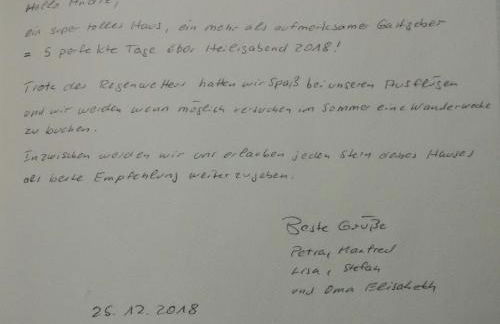 Hallo André,
ein super tolles Haus, ein mehr als aufmerksamer Gastgeber
= 5 perfekte Tage über Heiligabend 2018!
Trotz des Regenwetters hatten wir Spaß bei unseren Ausflügen
und wir werden wenn möglich versuchen im Sommer eine Wanderwoche
zu buchen.
Inzwischen werden wir uns erlauben jeden Stern deines Hauses
als beste Empfehlung weiterzugeben.
Beste Grüße
Petra, Manfred
Lisa, Stefan
und Oma Elisabeth
26.12.2018